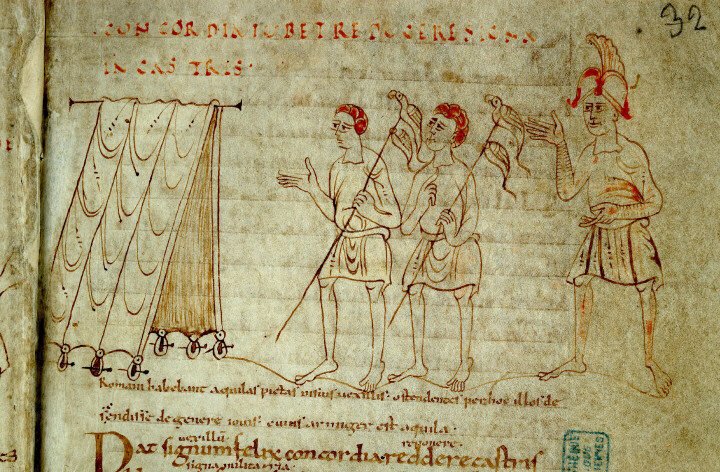 32
CONCORDIA IUBET REDUCERE SIGNA
IN CASTRIS.
Romani habebant aquilas pictas in suis vexillis. ostendentes per hoc illos de
scendisse de genere iovis. cuius armiger est aquila.
vexillu reponere.
Dat signum felix concordia reddere castris
signa militaria